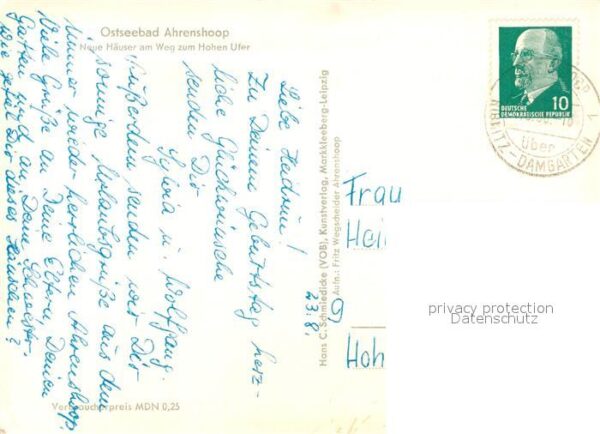 Ostseebad Ahrenshoop
Neue Häuser am Weg zum Hohen Ufer
23.8.
Liebe Heidrun!
Zu Deinem Geburtstag herz-
liche Glückwünsche
senden Dir
Sylvia u. Wolfgang.
Außerdem senden wir Dir
sonnige Urlaubsgrüße aus dem
immer wieder herrlichen Ahrenshoop.
Viele Grüße an Deine Eltern, Deinen
Gatten und an Deine Schwester.
Wie gefällt Dir dieses Häuschen?
Verbraucherpreis MDN 0,25
Hans C. Schmiedicke (VOB), Kunstverlag, Markkleeberg-Leipzig
Aufn.: Fritz Wegscheider Ahrenshoop
DEUTSCHE
DEMOKRATISCHE REPUBLIK
10
über
RIBNITZ-DAMGARTEN 1
Frau
Hei
9
Hoh
privacy protection
Datenschutz